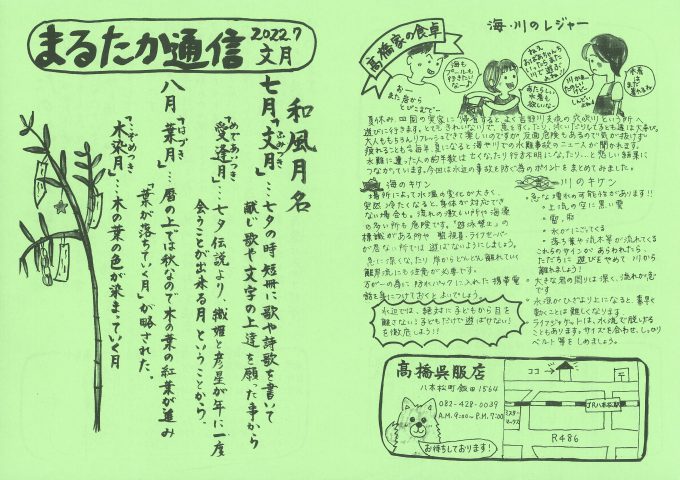 まるたか通信
2022.7
文月
和風月名
七月「文月」…七夕の時 短冊に歌や詩歌を書いて
ふみつき
献じ 歌や文字の上達を願った事から
「愛逢月」…七夕伝説より、織姫と彦星が年に一度
めであいつき
会うことが出来る月 ということから、
八月「葉月」…暦の上では秋なので木の葉の紅葉が進み
はづき
「葉が落ちていく月」が略された。
「木染月」…木の葉の色が染まっていく月
こぞめつき
髙橋家の食卓
海・川のレジャー
海も
プールも
行きたい
なー♪
おー
また岩から
とびこむぞー
ねぇ、
おばあちゃん
いったらまた
川で遊ぶ
よね
あたらしい
水着も
欲しいな
水着は
まだ
着れるね
夏休み、四国の実家に帰省すると、よく吉野川支流の穴吹川という所へ
遊びに行きます。とても、きれいな川で、魚をすくったり、泳いだりしてると過ごせます。
大人ももちろんリフレッシュできて楽しいのですが、反面危険もあるので気が抜けず
疲れることも。毎年、夏になると海や川での水難事故のニュースが聞かれます。
水難に遭った人の約半数は 亡くなったり行き不明になったり…と悲しい結果に
つながっています。今回は水辺の事故を防ぐ為のポイントをまとめてみました。
海のキケン
場所によって水温の変化が大きく、
突然冷たくなると、身体が対応でき
ない場合も。流れの激しい所や海藻
の多い所も危険です。「遊泳禁止」の
標識がある所や 監視員・ライフセーバー
が居ない所では 遊ばないようにしましょう。
急に深くなったり 岸からどんどん離れていく
離岸流にも注意が必要です。
万が一の為に 防水パックに入れた携帯電
話を身につけておくとよいでしょう。
川のキケン
急な増水の可能性があります!!
・上流の空に黒い雲
・雷、雨
・水がにごってくる
・落ち葉や流木等が流れてくる
これらのサインが あらわれたら、
ただちに 遊びをやめて 川から
離れましょう!
大きな岩の周りは深く、流れが急
です
水深がひざより上になると、素早く
動くことは難しくなります
ライフジャケットは、水流で脱げる
こともあります。サイズを合わせ、しっかり
ベルト等をしめましょう。
水辺では、絶対に子どもから目を
離さない!子どもだけで遊ばせない!
を徹底しよう!!
髙橋呉服店
八本松町飯田1564
082-428-0039
A.M.9:00〜P.M.7:00
お待ちしております!
ココ
JR八本松駅
ミスター
マックス
R486